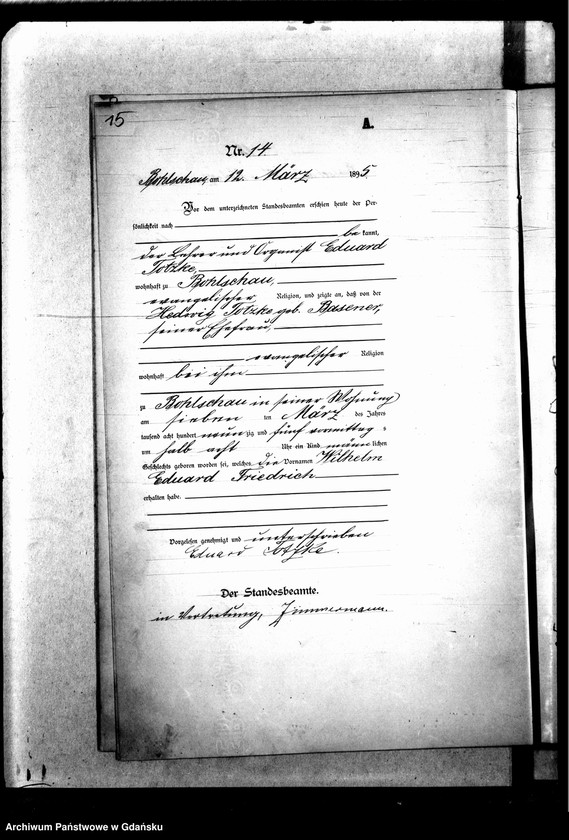 15
A.
Nr. 14
Bohlschau, am 12. März 1895
Vor dem unterzeichneten Standesbeamten erschien heute der Per-
sönlichkeit nach
be kannt,
der Lehrer und Organist Eduard
Totzke,
wohnhaft zu Bohlschau,
evangelischer Religion, und zeigte an, daß von der
Hedwig Totzke geb. Basener,
seiner Ehefrau,
evangelischer Religion
wohnhaft bei ihm
zu Bohlschau in seiner Wohnung
am sieben ten März des Jahres
tausend acht hundert neun zig und fünf vormittag s
um halb acht Uhr ein Kind männ lichen
Geschlechts geboren worden sei, welches die Vornamen Wilhelm
Eduard Friedrich
erhalten habe.
Vorgelesen genehmigt und unterschrieben
Eduard Totzke.
Der Standesbeamte.
in Vertretung, Zimmermann.
Archiwum Państwowe w Gdańsku